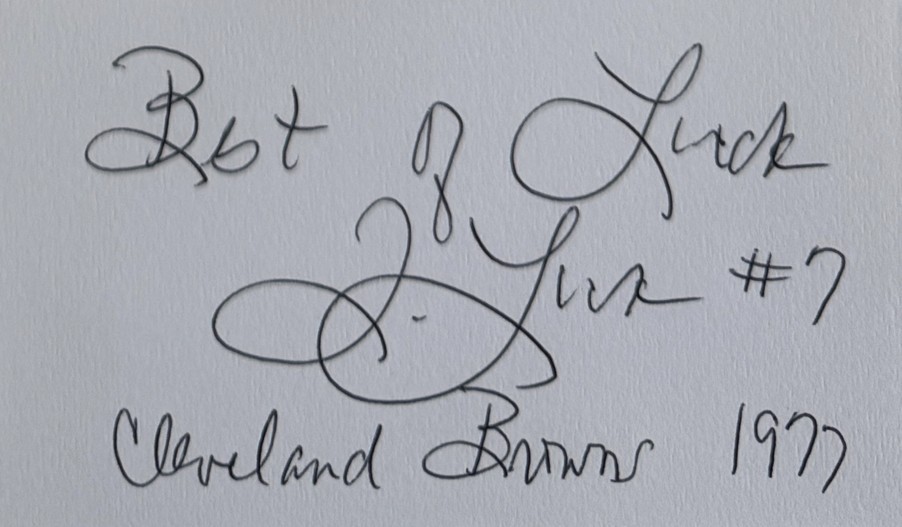 Best of Luck
T. Luck #7
Cleveland Browns 1977